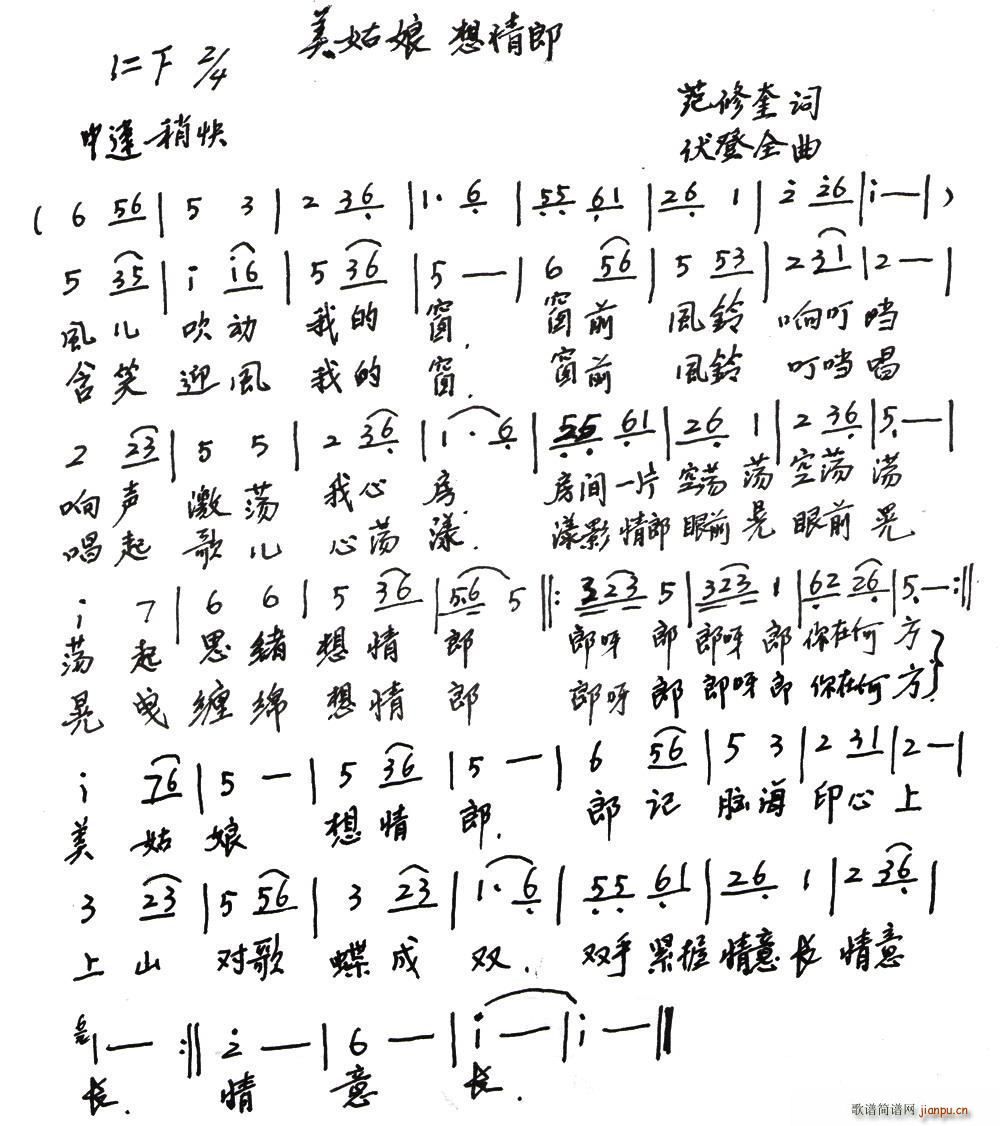 美姑娘 想情郎
1=F 2/4
范修奎 词
中速稍快
伏登全 曲
( 6 56 | 5 3 | 2 36 | 1· 6 | 55 61 | 26 1 | 2 26 | i — | )
5 35 | i i6 | 5 36 | 5 — | 6 56 | 5 53 | 2 31 | 2 — |
風儿 吹动 我的 窗. 窗前 風鈴 响叮 当
含笑 迎風 我的 窗. 窗前 風鈴 叮当 唱
2 23 | 5 5 | 2 36 | 1· 6 | 55 61 | 26 1 | 2 36 | 5 — |
响声 激荡 我心 房 房间一片 空荡荡 空荡荡
唱起 歌儿 心荡漾. 漾影情郎 眼前晃 眼前晃
i 7 | 6 6 | 5 36 | 56 5 ‖: 323 5 | 323 1 | 62 26 | 5 — :‖
荡起 思绪 想情 郎 郎呀 郎 郎呀 郎 你在何 方
晃曳 缠绵 想情 郎 郎呀 郎 郎呀 郎 你在何 方
i 76 | 5 — | 5 36 | 5 — | 6 56 | 5 3 | 2 31 | 2 — |
美姑 娘 想情 郎. 郎记 脑海 印心 上
3 23 | 5 56 | 3 23 | 1· 6 | 55 61 | 26 1 | 2 36 |
上山 对歌 蝶成 双. 双手紧握 情意长 情意
1 — :‖ 2 — | 6 — | i — | i — ‖
长. 情 意 长.
歌谱简谱网 jianpu.cn